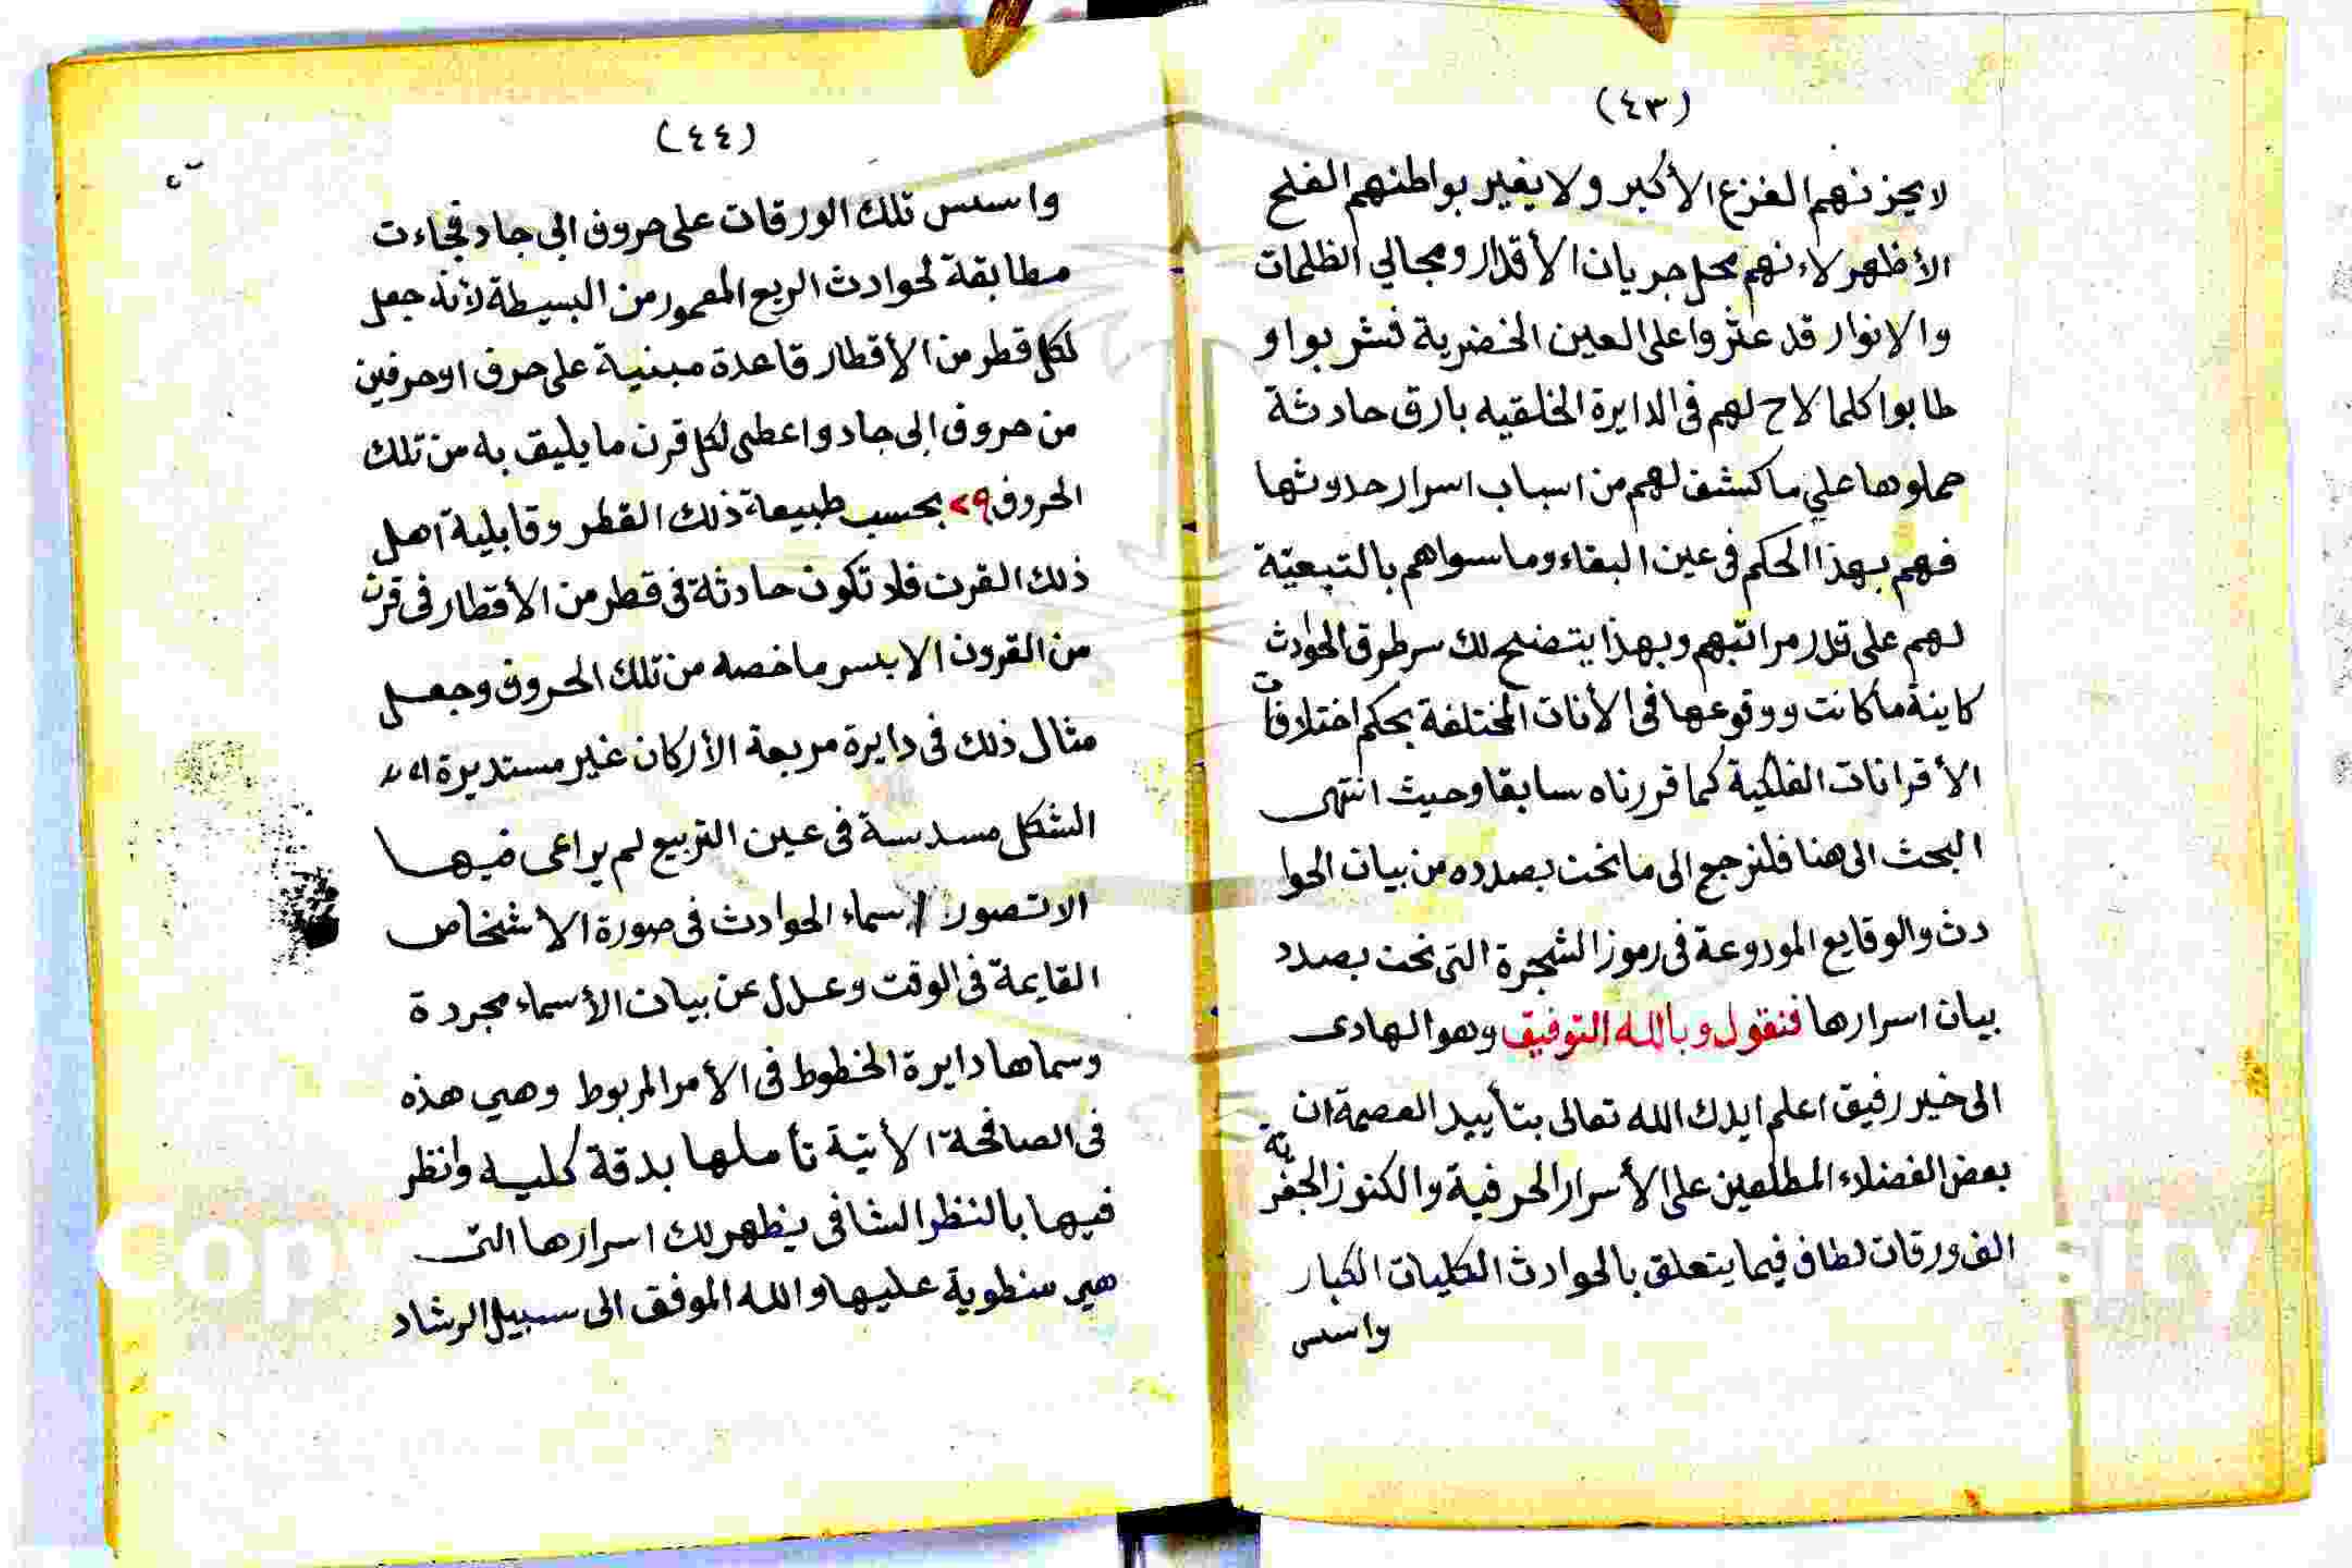 (٤٣)
لا يحزنهم الفزع الأكبر ولا يغير بواطنهم الفلح
الأظهر لاءنهم محل جريان الأقدار ومجالي الظلمات
والانوار قد عثروا على العين الخضرية فشربوا و
طابوا كلما لاح لهم فى الدايرة الخلقيه بارق حادثة
حملوها علي ما كشف لهم من اسباب اسرار حدوثها
فهم بهذا الحكم فى عين البقاء وما سواهم بالتبعيّة
لهم على قدر مراتبهم وبهذا يتضح لك سر طرق الحوادث
كاينة ما كانت ووقوعها فى الأنات المختلفة بحكم اختلافات
الأقرانات الفلكية كما قررناه سابقا وحيث انتهى
البحث الى هنا فلنرجع الى ما نحن بصدده من بيان الحوا
دث والوقايع المودوعة فى رموز الشجرة التى نحن بصدد
بيان اسرارها فنقول وبالله التوفيق وهو الهادى
الى خير رفيق اعلم ايدك الله تعالى بتأييد العصمة ان
بعض الفضلاء المطلعين على الأسرار الحرفية والكنوز الجفرية
الف ورقات لطاف فيما يتعلق بالحوادث الكليات الكبار
واسس
(٤٤)
واسس تلك الورقات على حروف ابى جاد فجاءت
مطابقة لحوادث الربع المعمور من البسيطة لأنه جعل
لكل قطر من الأقطار قاعدة مبنية على حرف او حرفين
من حروف ابى جاد واعطى لكل قرن ما يليق به من تلك
الحروف بحسب طبيعة ذلك القطر وقابلية اهل
ذلك القرن فلا تكون حادثة فى قطر من الأقطار فى قرن
من القرون الا بسر ما خصه من تلك الحروف وجعل
مثال ذلك فى دايرة مربعة الأركان غير مستديرة
الشكل مسدسة فى عين التربيع لم يراعى فيها
الا تصور اسماء الحوادث فى صورة الاشخاص
القايمة فى الوقت وعدل عن بيان الأسماء مجردة
وسماها دايرة الخطوط فى الأمر المربوط وهي هذه
فى الصافحة الأتية تأملها بدقة كليه وانظر
فيها بالنظر الشافى يظهر لك اسرارها التى
هي منطوية عليها والله الموفق الى سبيل الرشاد